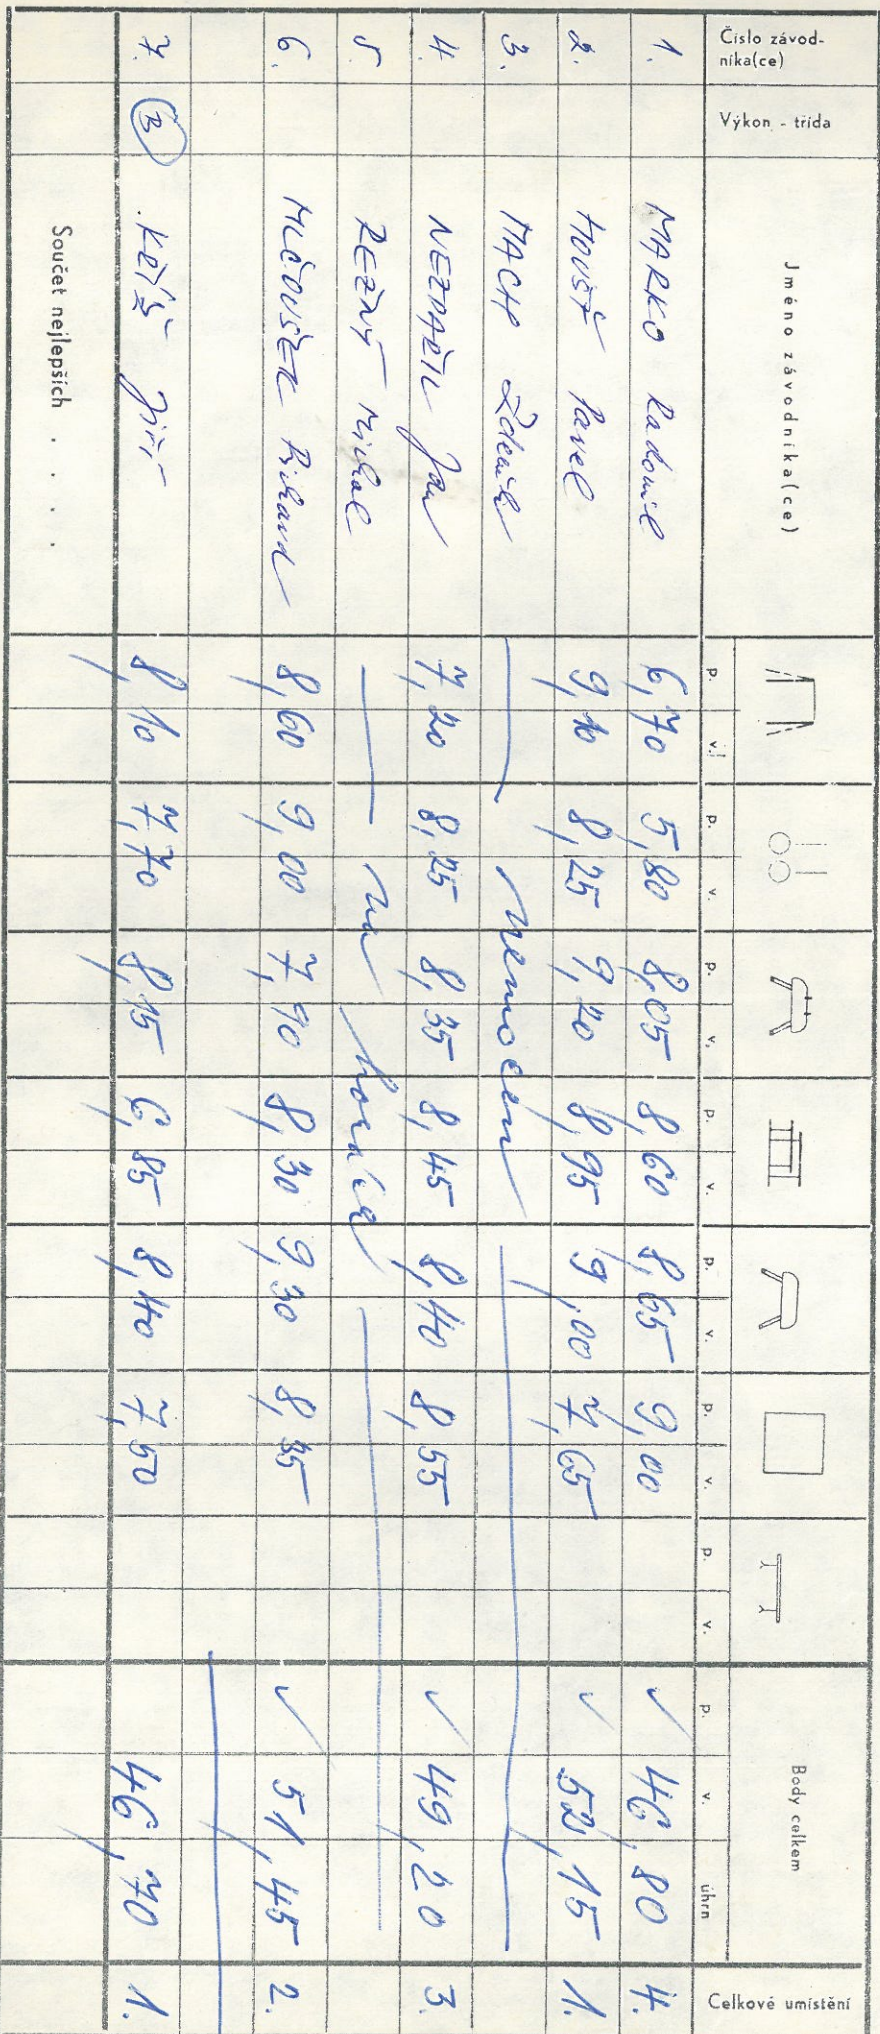 Číslo závod-
níka(ce) Výkon - třída Jméno závodníka(ce) Body celkem Celkové umístění
p. v. p. v. p. v. p. v. p. v. p. v. p. v. p. v. úhrn
1. MARKO Radomil 6,70 5,80 8,05 8,60 8,65 9,00 ✓ 46,80 4.
2. HOUŠŤ Pavel 9,10 8,25 9,20 8,95 9,00 7,65 ✓ 52,15 1.
3. MACH Zdeněk — nemocen —
4. NEZDAŘIL Jan 7,20 8,25 8,35 8,45 8,40 8,55 ✓ 49,20 3.
5. ŘEZNÝ Michal — na horách —
6. MLČOUŠEK Richard 8,60 9,00 7,90 8,30 9,30 8,35 ✓ 51,45 2.
7. B Jiří 8,10 7,70 8,15 6,85 8,40 7,50 46,70 1.
Součet nejlepších . . . .